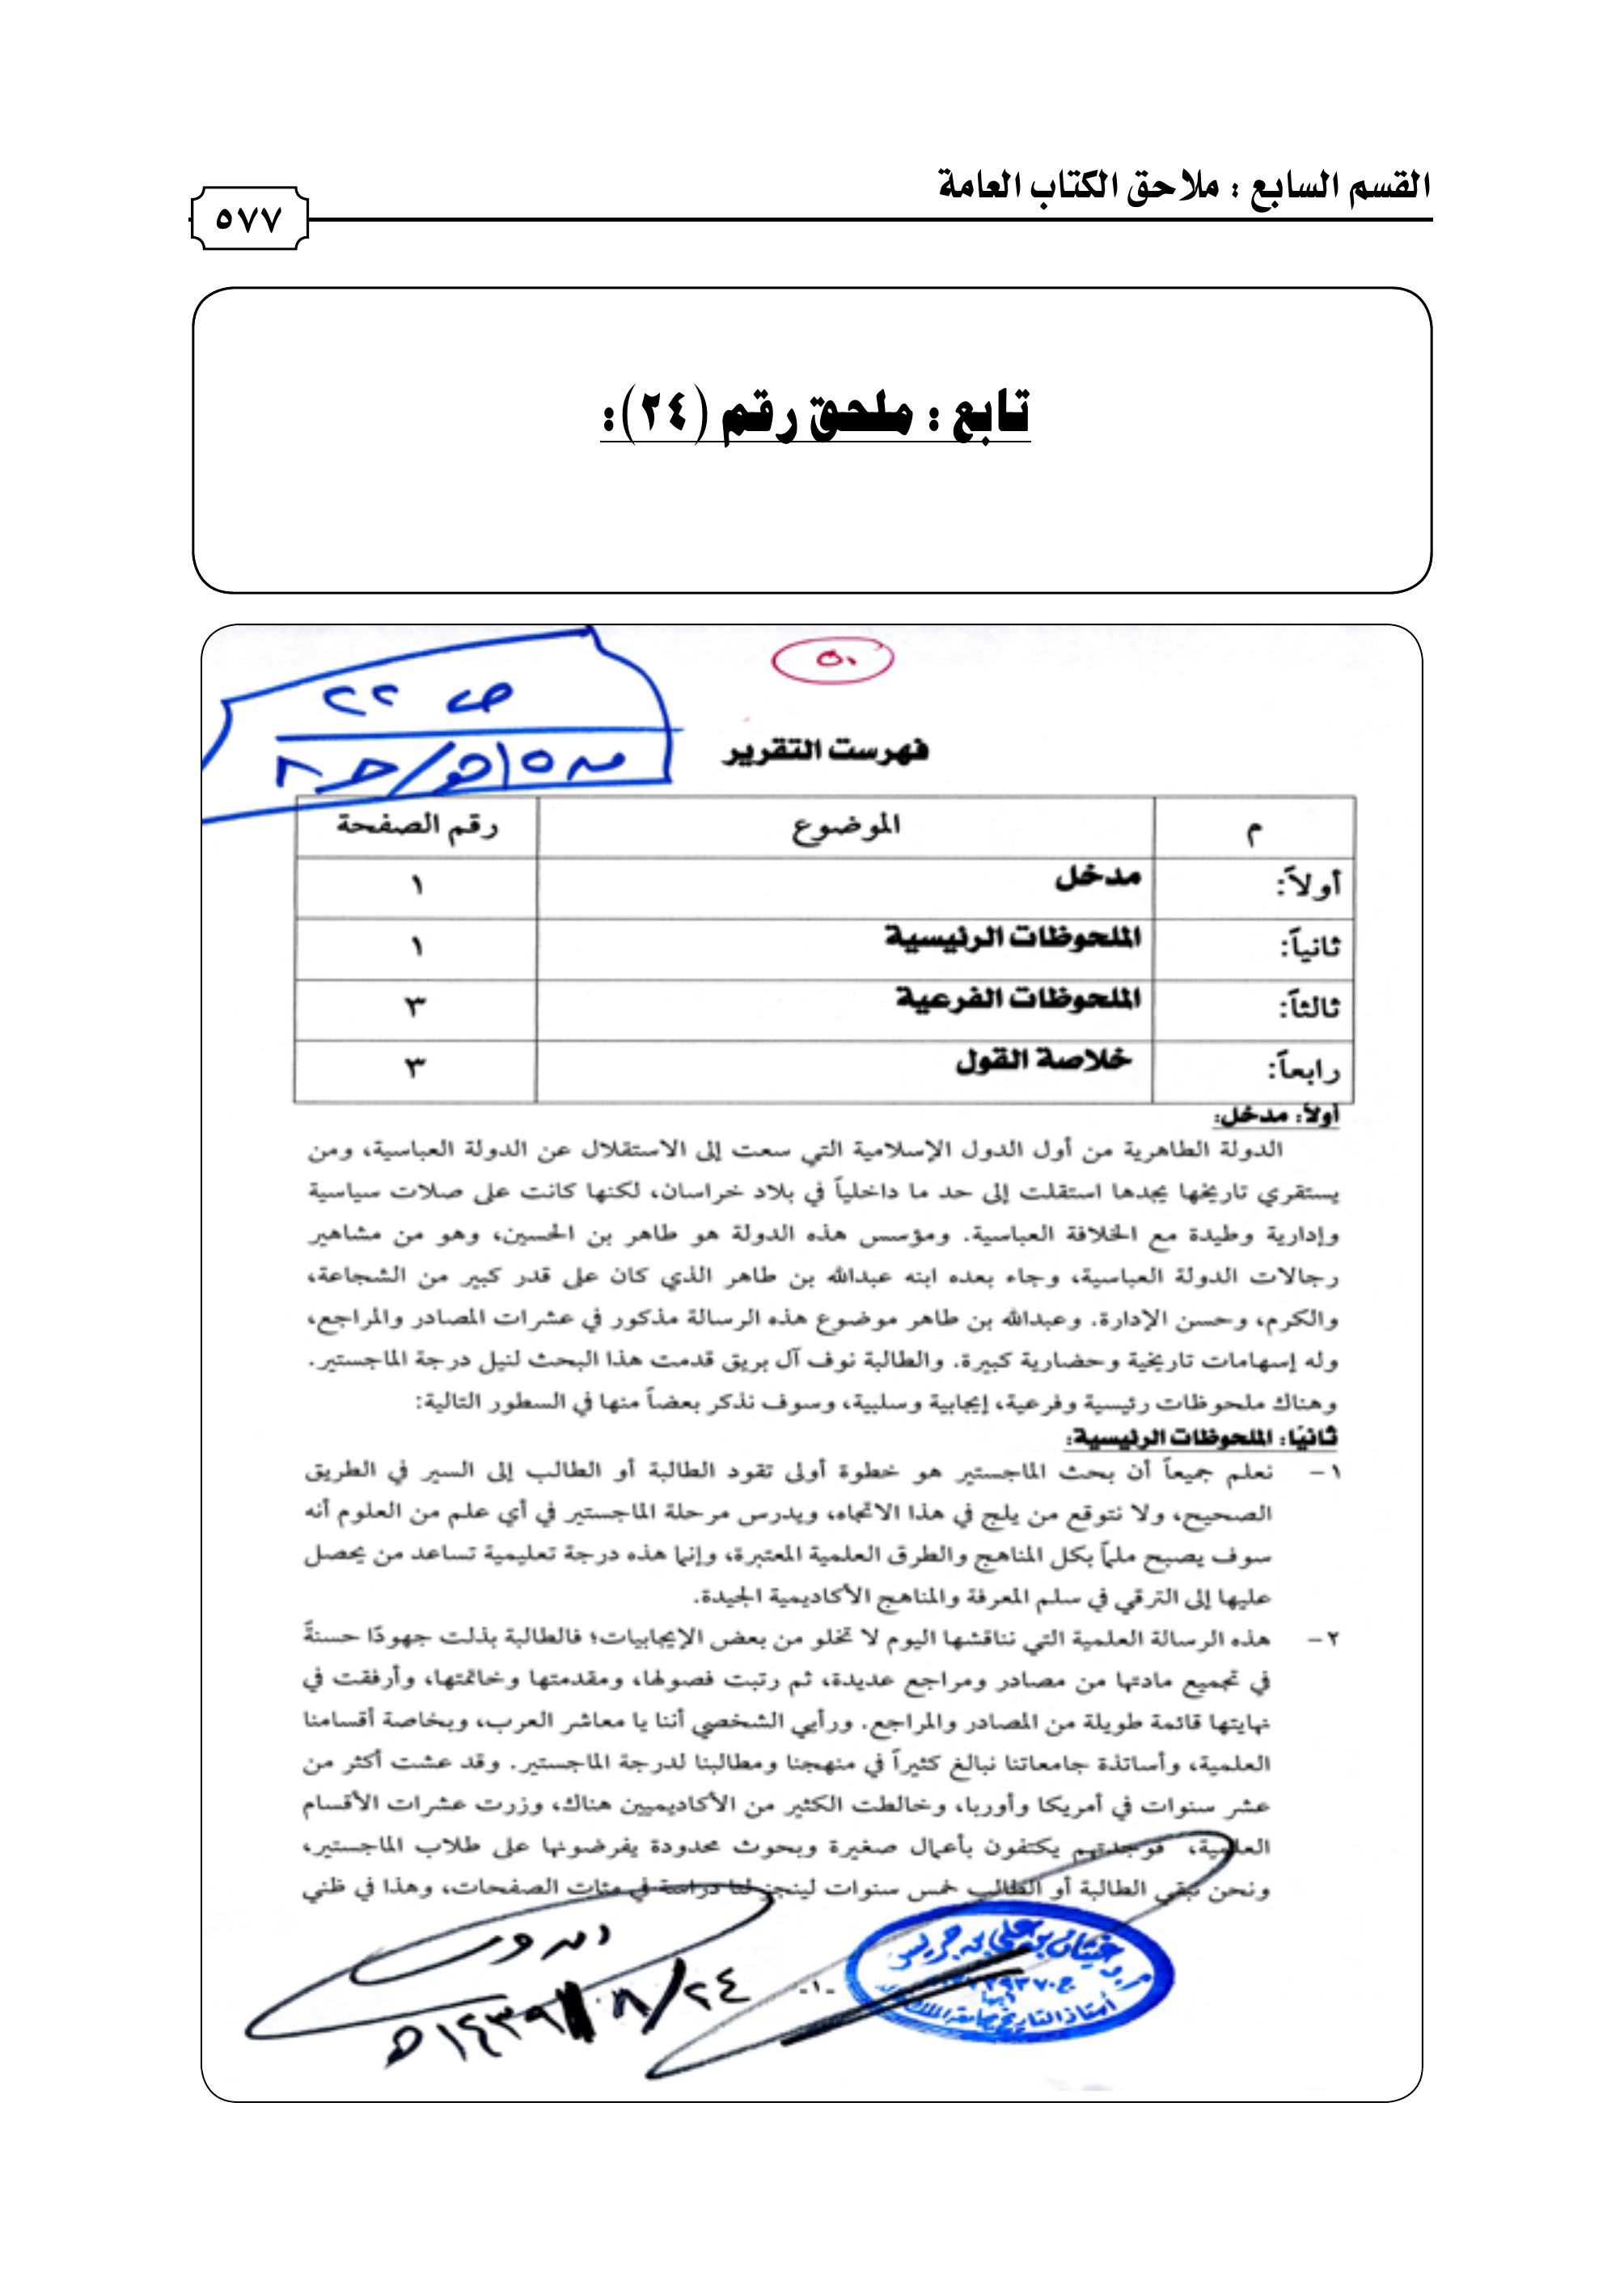 القسم السابع : ملاحق الكتاب العامة
٥٧٧
تابع : ملحق رقم (٢٤):
٥٠
ص ٢٢
فهرست التقرير
م الموضوع رقم الصفحة
أولاً: مدخل ١
ثانياً: الملحوظات الرئيسية ١
ثالثاً: الملحوظات الفرعية ٣
رابعاً: خلاصة القول ٣
أولاً: مدخل:
الدولة الطاهرية من أول الدول الإسلامية التي سعت إلى الاستقلال عن الدولة العباسية، ومن
يستقري تاريخها يجدها استقلت إلى حد ما داخلياً في بلاد خراسان، لكنها كانت على صلات سياسية
وإدارية وطيدة مع الخلافة العباسية. ومؤسس هذه الدولة هو طاهر بن الحسين، وهو من مشاهير
رجالات الدولة العباسية، وجاء بعده ابنه عبدالله بن طاهر الذي كان على قدر كبير من الشجاعة،
والكرم، وحسن الإدارة. وعبدالله بن طاهر موضوع هذه الرسالة مذكور في عشرات المصادر والمراجع،
وله إسهامات تاريخية وحضارية كبيرة. والطالبة نوف آل بريق قدمت هذا البحث لنيل درجة الماجستير.
وهناك ملحوظات رئيسية وفرعية، إيجابية وسلبية، وسوف نذكر بعضاً منها في السطور التالية:
ثانيًا: الملحوظات الرئيسية:
١- نعلم جميعاً أن بحث الماجستير هو خطوة أولى تقود الطالبة أو الطالب إلى السير في الطريق
الصحيح، ولا نتوقع من يلج في هذا الاتجاه، ويدرس مرحلة الماجستير في أي علم من العلوم أنه
سوف يصبح ملماً بكل المناهج والطرق العلمية المعتبرة، وإنما هذه درجة تعليمية تساعد من يحصل
عليها إلى الترقي في سلم المعرفة والمناهج الأكاديمية الجيدة.
٢- هذه الرسالة العلمية التي نناقشها اليوم لا تخلو من بعض الإيجابيات؛ فالطالبة بذلت جهودًا حسنةً
في تجميع مادتها من مصادر ومراجع عديدة، ثم رتبت فصولها، ومقدمتها وخاتمتها، وأرفقت في
نهايتها قائمة طويلة من المصادر والمراجع. ورأيي الشخصي أننا يا معاشر العرب، وبخاصة أقسامنا
العلمية، وأساتذة جامعاتنا نبالغ كثيراً في منهجنا ومطالبنا لدرجة الماجستير. وقد عشت أكثر من
عشر سنوات في أمريكا وأوربا، وخالطت الكثير من الأكاديميين هناك، وزرت عشرات الأقسام
العلمية، فوجدتهم يكتفون بأعمال صغيرة وبحوث محدودة يفرضونها على طلاب الماجستير،
ونحن نبقي الطالبة أو الطالب خمس سنوات لينجز لنا دراسة في مئات الصفحات، وهذا في ظني
-١-
٢٤/٨/١٤٣٩هـ